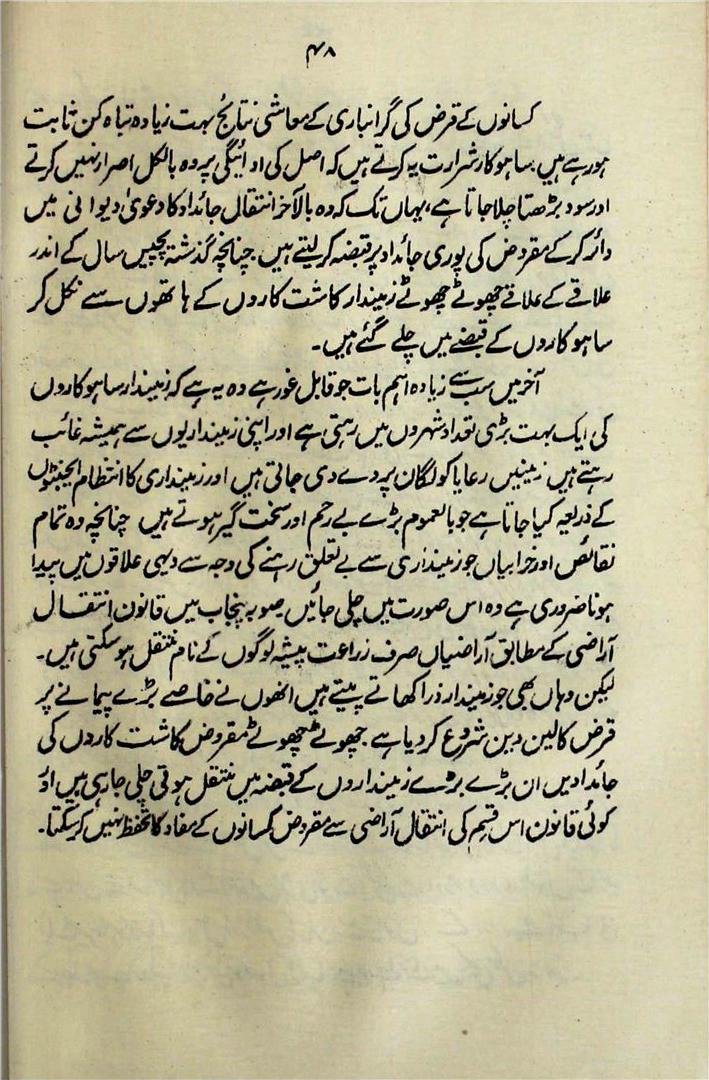 ۴۸
کسانوں کے قرض کی گرانباری کے معاشی نتائج بہت زیادہ تباہ کن ثابت
ہو رہے ہیں۔ ساہوکار شرارت یہ کرتے ہیں کہ اصل کی ادائیگی پر وہ بالکل اصرار نہیں کرتے
اور سود بڑھتا چلا جاتا ہے، یہاں تک کہ وہ بالآخر انتقال جائداد کا دعویٰ دیوانی میں
دائر کر کے مقروض کی پوری جائداد پر قبضہ کر لیتے ہیں۔ چنانچہ گذشتہ پچیس سال کے اندر
علاقے کے علاقے چھوٹے چھوٹے زمیندار کاشت کاروں کے ہاتھوں سے نکل کر
ساہوکاروں کے قبضے میں چلے گئے ہیں۔
آخر میں سب سے زیادہ اہم بات جو قابل غور ہے وہ یہ ہے کہ زمیندار ساہوکاروں
کی ایک بہت بڑی تعداد شہروں میں رہتی ہے اور اپنی زمینداریوں سے ہمیشہ غائب
رہتے ہیں۔ زمینیں رعایا کو لگان پر دے دی جاتی ہیں اور زمینداری کا انتظام ایجنٹوں
کے ذریعہ کیا جاتا ہے جو بالعموم بڑے بے رحم اور سخت گیر ہوتے ہیں چنانچہ وہ تمام
نقائص اور خرابیاں جو زمینداری سے بے تعلق رہنے کی وجہ سے دیہی علاقوں میں پیدا
ہونا ضروری ہے وہ اس صورت میں چلی جائیں۔ صوبہ پنجاب میں قانون انتقال
آراضی کے مطابق آراضیاں صرف زراعت پیشہ لوگوں کے نام منتقل ہو سکتی ہیں۔
لیکن وہاں بھی جو زمیندار ذرا کھاتے پیتے ہیں انھوں نے خاصے بڑے پیمانے پر
قرض کا لین دین شروع کر دیا ہے۔ چھوٹے چھوٹے مقروض کاشت کاروں کی
جائدادیں ان بڑے بڑے زمینداروں کے قبضہ میں منتقل ہوتی چلی جا رہی ہیں اور
کوئی قانون اس قسم کی انتقال آراضی سے مقروض کسانوں کے مفاد کا تحفظ نہیں کر سکتا۔